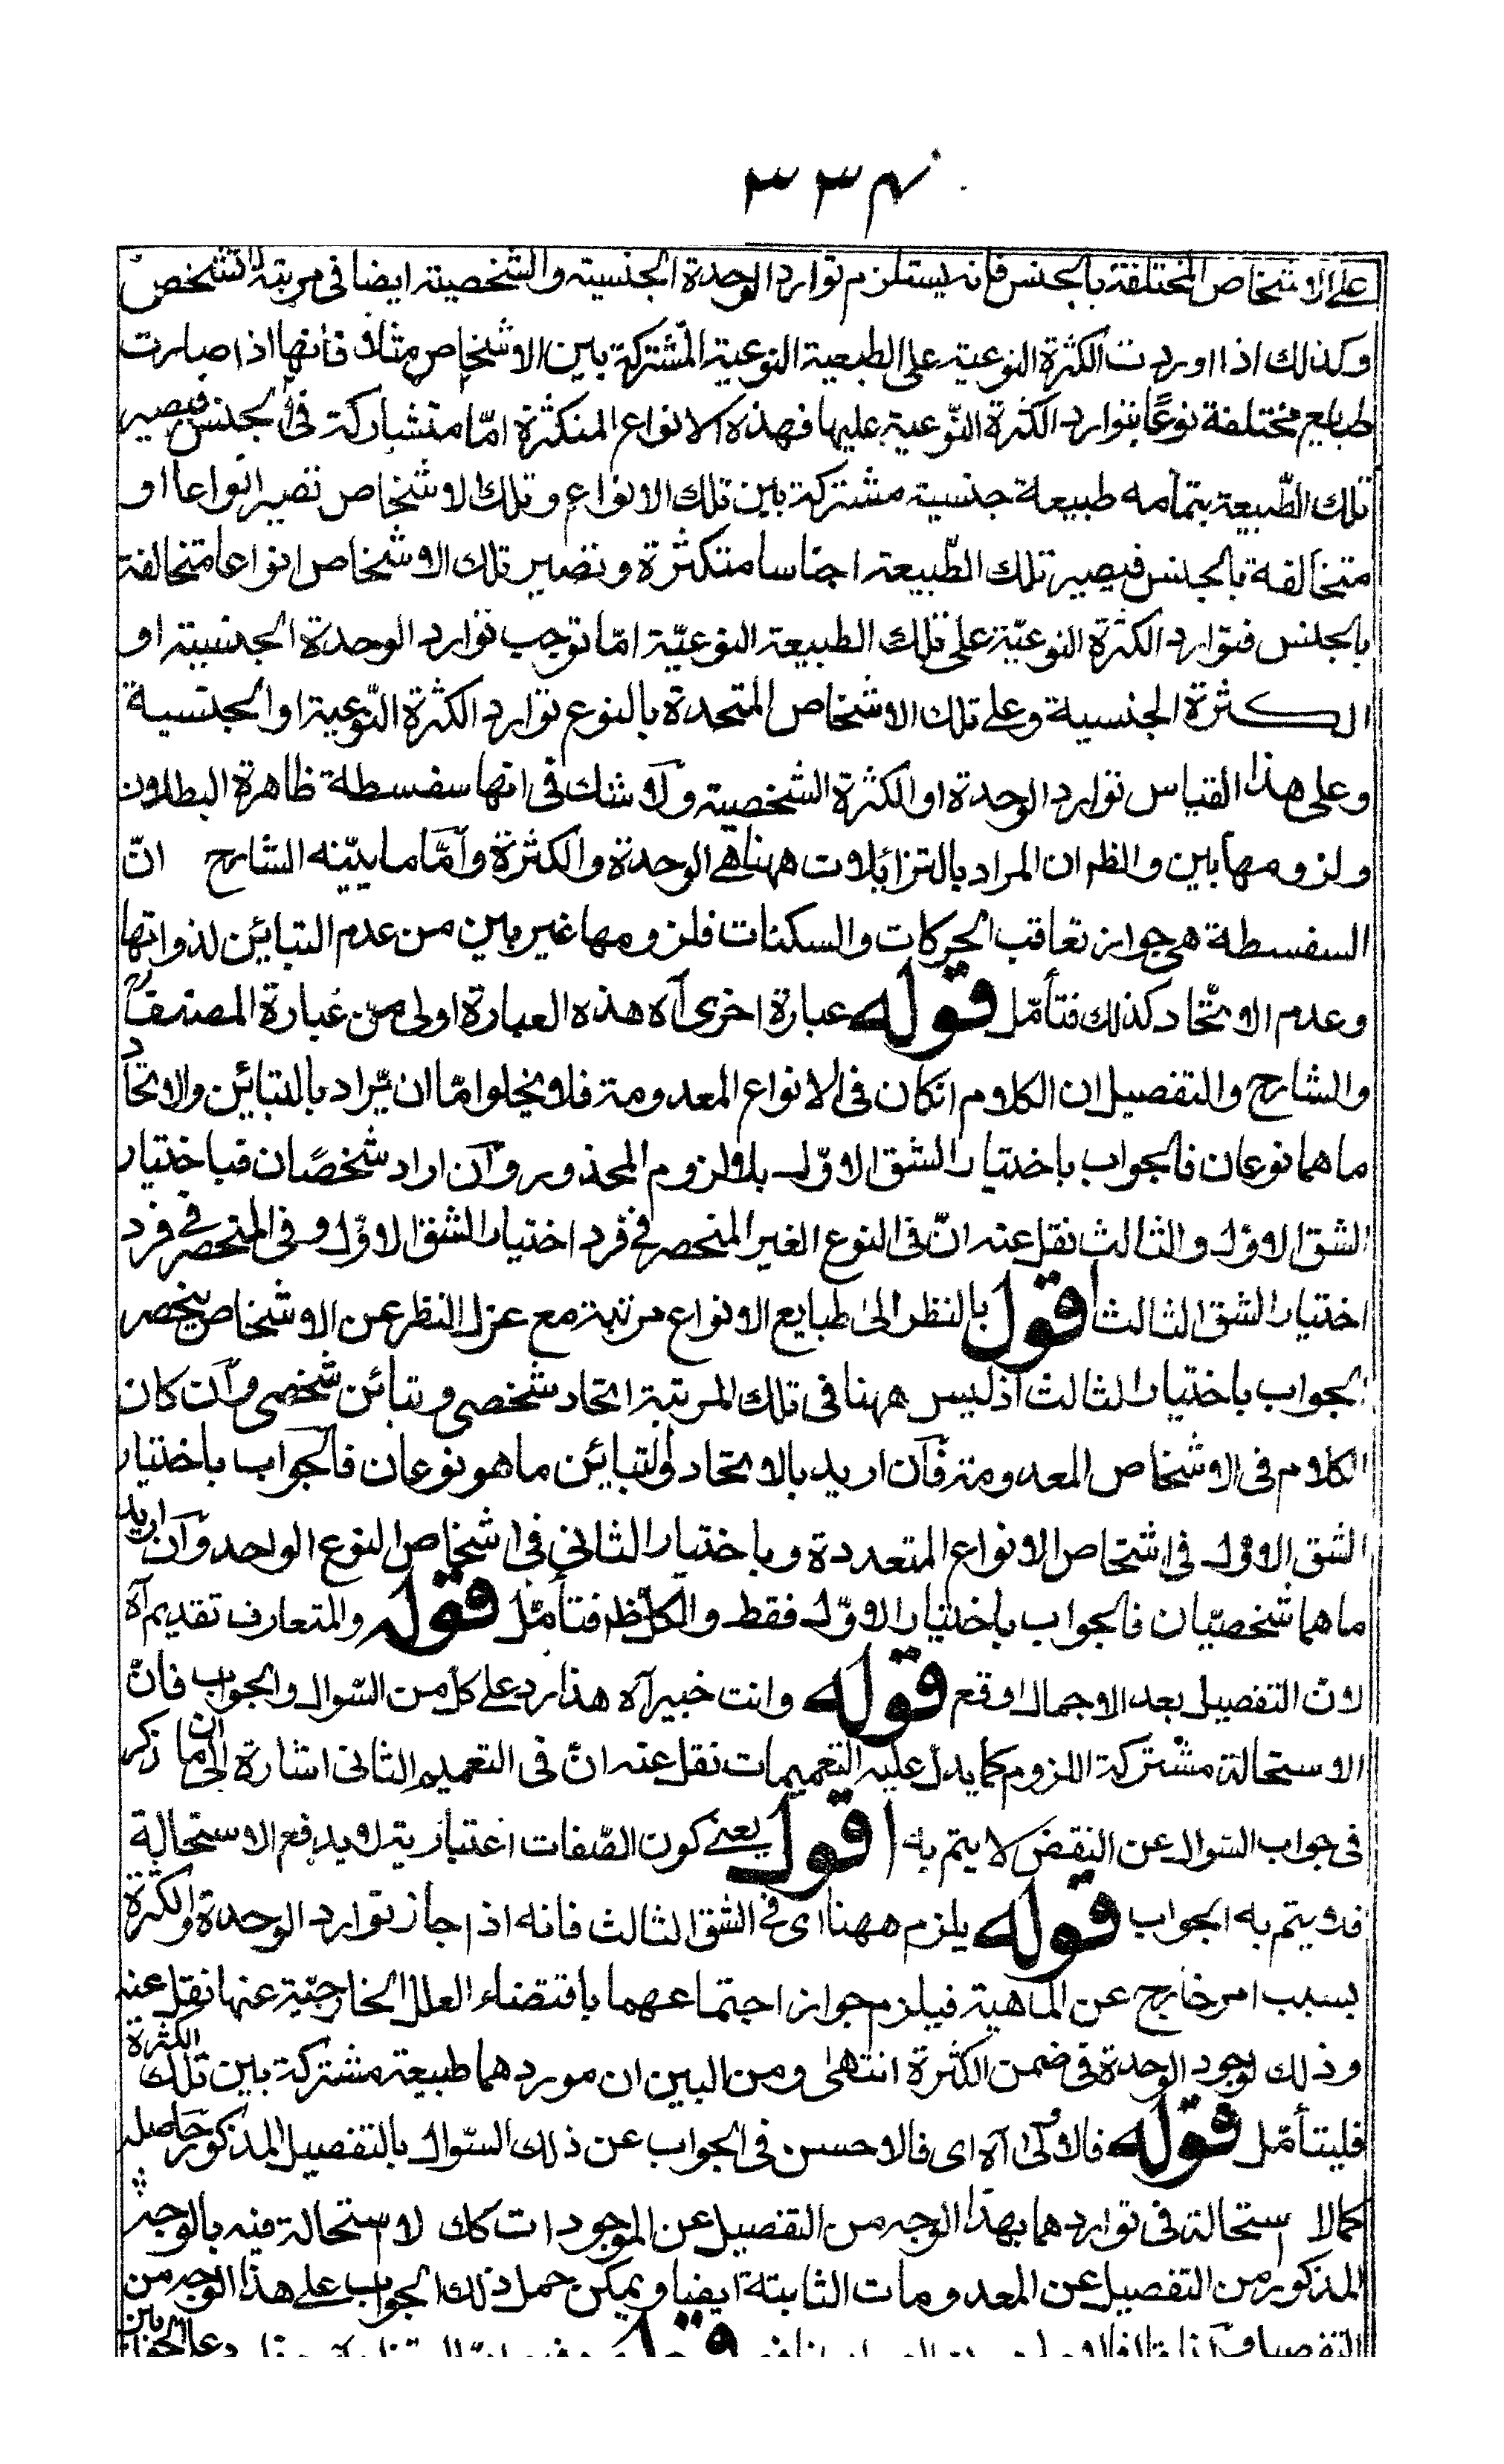 ٣٣
على الاشخاص المختلفة بالجنس فانه يستلزم توارد الوحدة الجنسية والشخصية ايضا فى مرتبة التشخص
وكذلك اذا اوردت الكثرة النوعية على الطبعية النوعية المشتركة بين الاشخاص مثلا فانها اذا صارت
طبايع مختلفة نوعًا بتوارد الكثرة النّوعية عليها فهذه الانواع المتكثرة امّا متشاركة فى الجنس فيصير
تلك الطّبيعة بتمامه طبيعة جنسية مشتركة بين تلك الانواع وتلك الاشخاص تصير انواعا او
متخالفة بالجنس فيصير تلك الطّبيعة اجناسا متكثرة وتصير تلك الاشخاص انواعا متخالفة
بالجنس فتوارد الكثرة النوعيّة على تلك الطبيعة النوعيّة امّا توجب توارد الوحدة الجنسية او
الكثرة الجنسية وعلى تلك الاشخاص المتحدة بالنوع توارد الكثرة النّوعية او الجنسية
وعلى هذا القياس توارد الوحدة او الكثرة الشخصية ولا شك فى انها سفسطة ظاهرة البطلان
ولزومها بين والظ ان المراد بالتزائلات ههنا هى الوحدة والكثرة وامّا ما بيّنه الشارح انّ
السفسطة هى جواز تعاقب الحركات والسكنات فلزومها غير بين من عدم التبائن لذواتها
وعدم الاتّحاد كذلك فتأمّل قوله عبارة اخرى آه هذه العبارة اولى من عبارة المصنف
والشارح والتفصيل ان الكلام انكان فى الانواع المعدومة فلا يخلوا امّا ان يّراد بالتبائن والاتحاد
ما هما نوعان فالجواب باختيار الشق الاوّل بلا لزوم المحذور وان اراد شخصًان فباختيار
الشق الاوّل والثالث نقل عنه انّ فى النوع الغير المنحصر فى فرد اختيار الشق الاوّل وفى المنحصر فى فرد
اختيار الشق الثالث اقول بالنظر الى طبايع الانواع مرتبة مع عزل النظر عن الاشخاص ينحصر
الجواب باختيار الثالث اذ ليس ههنا فى تلك المرتبة اتحاد شخصى وتبائن شخصى وان كان
الكلام فى الاشخاص المعدومة فان اريد بالاتحاد والتبائن ما هو نوعان فالجواب باختيار
الشق الاوّل فى اشخاص الانواع المتعددة وباختيار الثانى فى اشخاص النوع الواحد وان اريد
ما هما شخصيّان فالجواب باختيار الاوّل فقط والكل ظ فتأمّل قوله والمتعارف تقديم آه
لان التفصيل بعد الاجمال اوقع قوله وانت خبير آه هذا رد على كل من السّوال والجواب فانّ
الاستحالة مشتركة اللزوم كما يدل عليه التعميمات نقل عنه انّ فى التعميم الثانى اشارة الى ان ما ذكر
فى جواب السّوال عن النقض لا يتم به اقول يعنى كون الصّفات اعتبارية لا يدفع الاستحالة
فلا يتم به الجواب قوله يلزم ههنا اى فى الشق الثالث فانه اذا جاز توارد الوحدة والكثرة
بسبب امر خارج عن الماهية فيلزم جواز اجتماعهما باقتضاء العلل الخارجيّة عنها نقل عنه
وذلك لوجود الوحدة فى ضمن الكثرة انتهى ومن البين ان موردهما طبيعة مشتركة بين تلك الكثرة
فليتأمّل قوله فالاولى آه اى فالاحسن فى الجواب عن ذلك السّوال بالتفصيل المذكور حاصله
كما لا استحالة فى تواردهما بهذا الوجه من التفصيل عن الموجودات كك لا استحالة فيه بالوجه
المذكور من التفصيل عن المعدومات الثابتة ايضا ويمكن حمل ذلك الجواب على هذا الوجه من